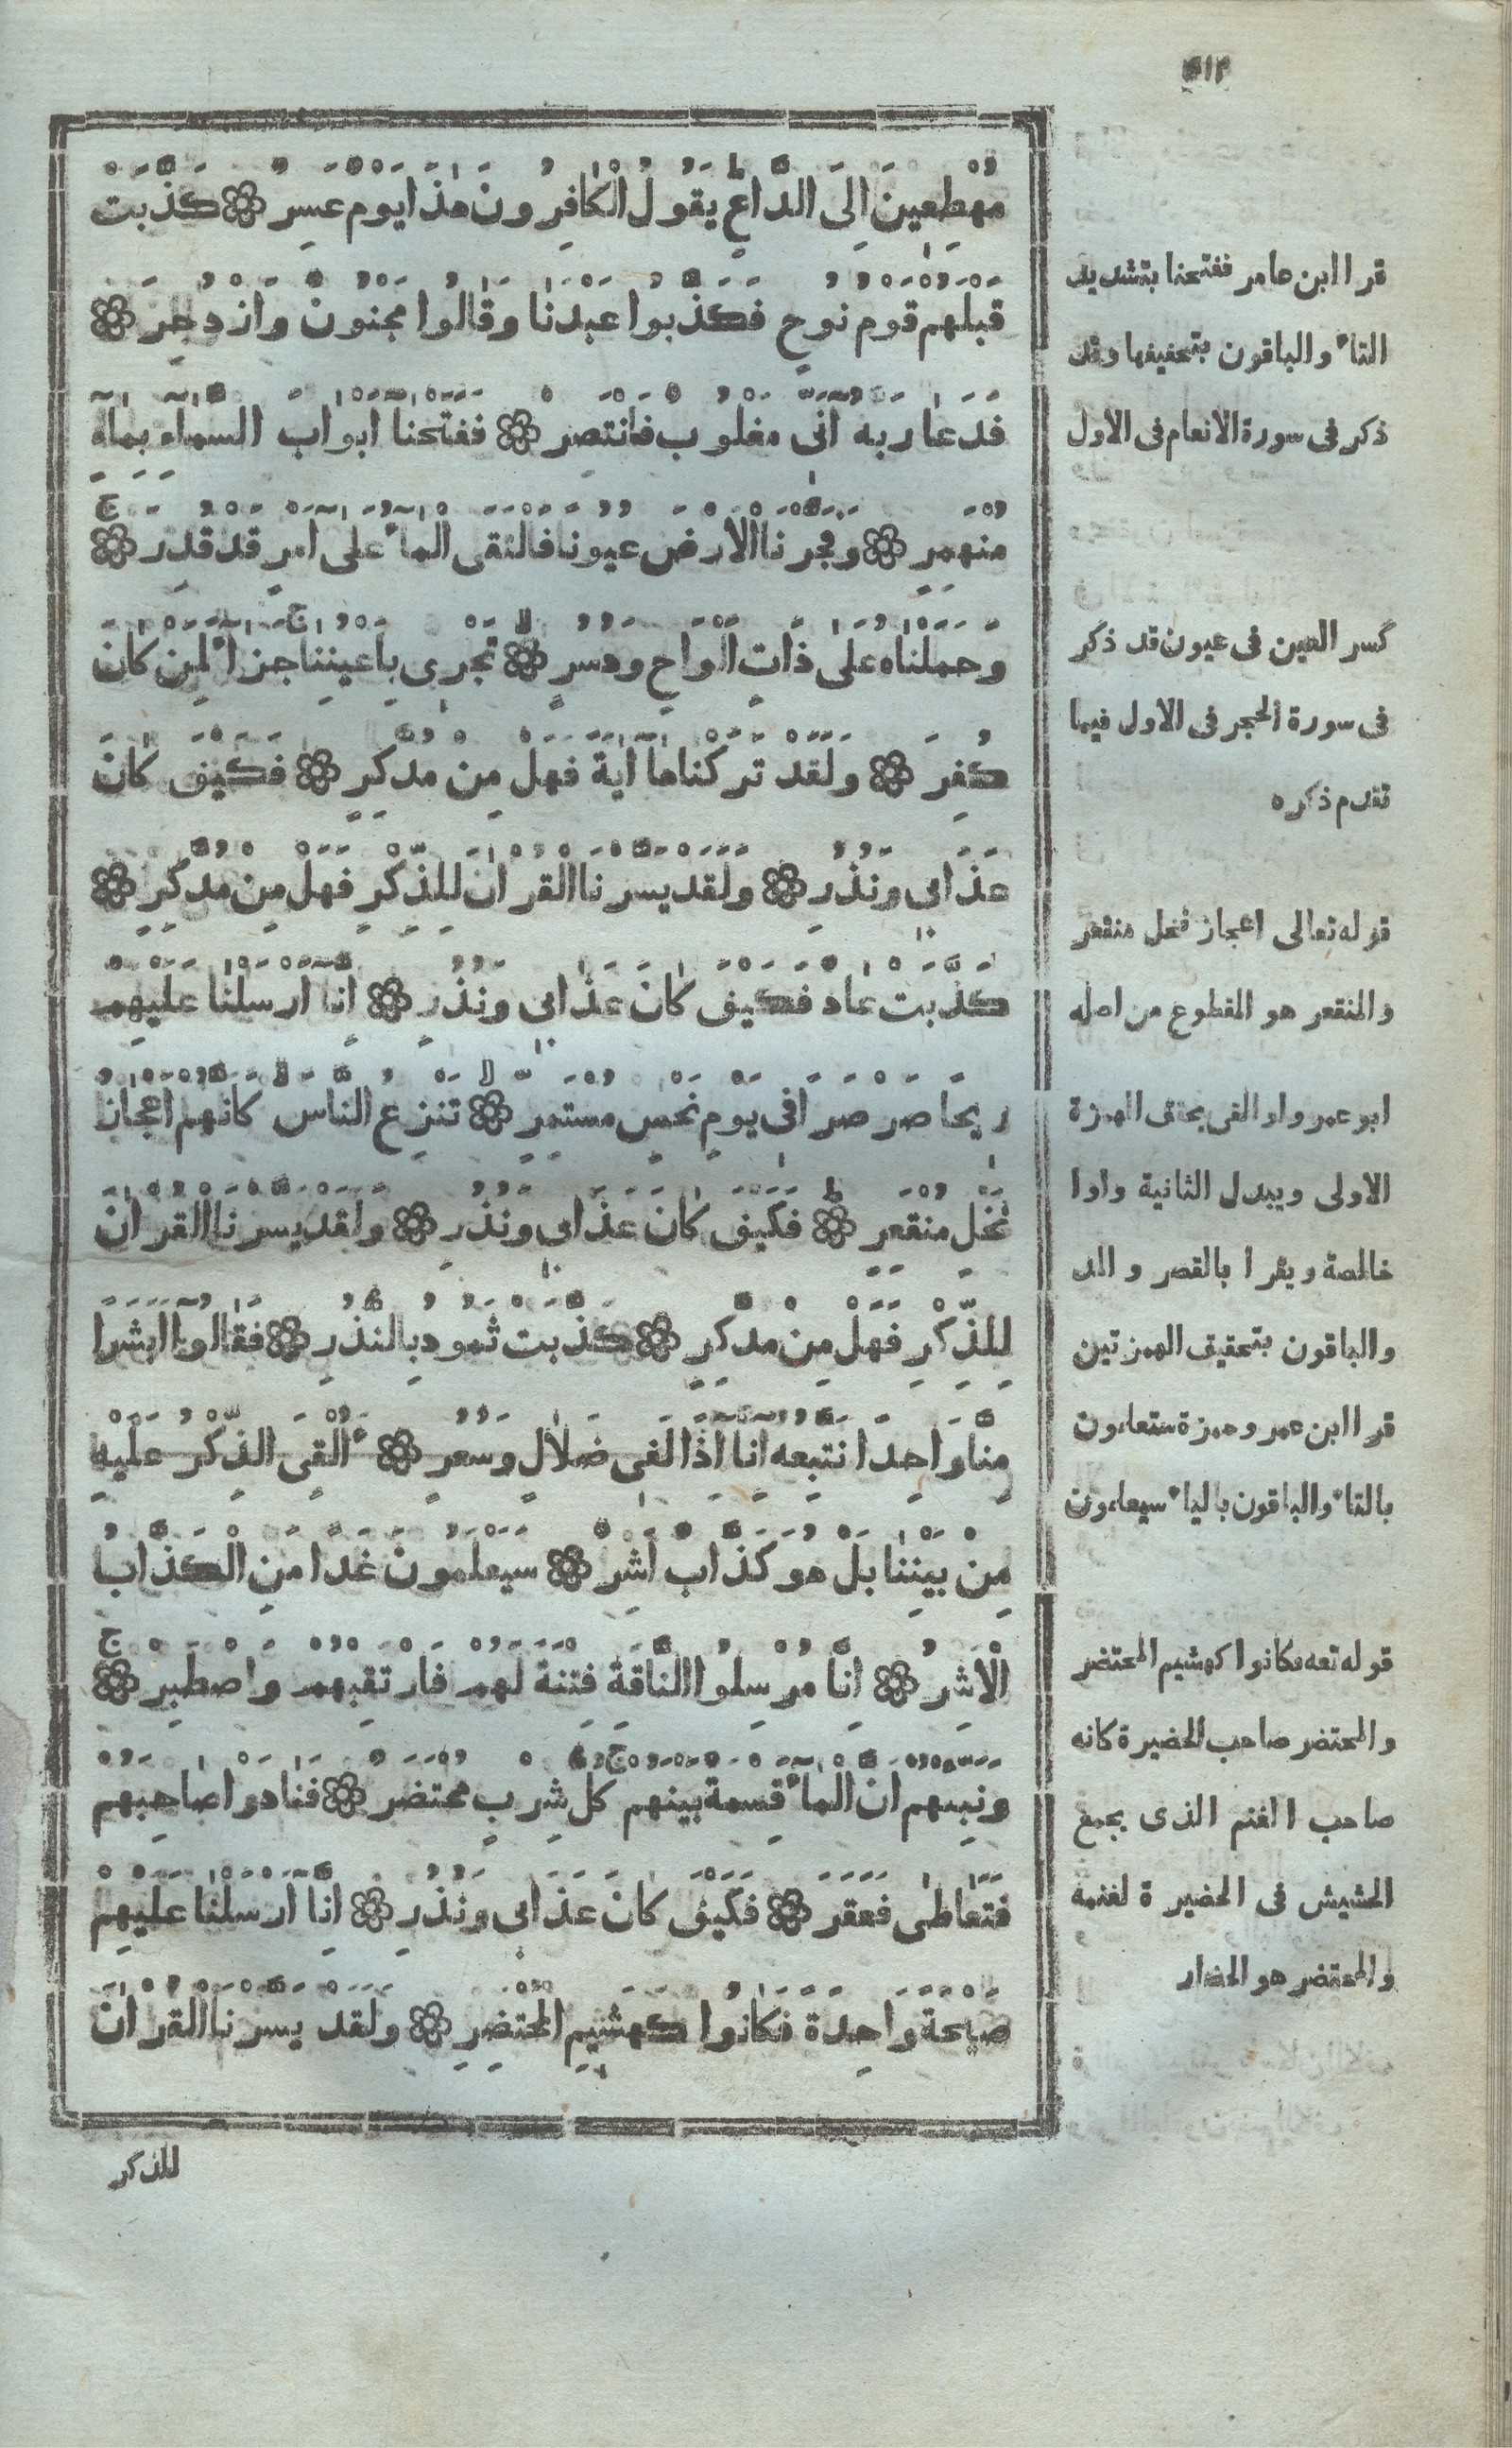 مُهْطِعِينَ اِلَى الدَّاعِ ط يَقُولُ الْكَافِرُونَ هٰذَا يَوْمٌ عَسِرٌ ۝ كَذَّبَتْ
قَبْلَهُمْ قَوْمُ نُوحٍ فَكَذَّبُوا عَبْدَنَا وَقَالُوا مَجْنُونٌ وَازْدُجِرَ ۝
فَدَعَا رَبَّهُ اَنِّى مَغْلُوبٌ فَانْتَصِرْ ۝ فَفَتَحْنَا اَبْوَابَ السَّمَاءِ بِمَاءٍ
مُنْهَمِرٍ ۝ وَفَجَّرْنَا الْاَرْضَ عُيُونًا فَالْتَقَى الْمَاءُ عَلَى اَمْرٍ قَدْ قُدِرَ ج ۝
وَحَمَلْنَاهُ عَلَى ذَاتِ اَلْوَاحٍ وَدُسُرٍ لا ۝ تَجْرِى بِاَعْيُنِنَا ج جَزَاءً لِمَنْ كَانَ
كُفِرَ ۝ وَلَقَدْ تَرَكْنَاهَا اٰيَةً فَهَلْ مِنْ مُدَّكِرٍ ۝ فَكَيْفَ كَانَ
عَذَابِى وَنُذُرِ ۝ وَلَقَدْ يَسَّرْنَا الْقُرْاٰنَ لِلذِّكْرِ فَهَلْ مِنْ مُدَّكِرٍ ۝
كَذَّبَتْ عَادٌ فَكَيْفَ كَانَ عَذَابِى وَنُذُرِ ۝ اِنَّا اَرْسَلْنَا عَلَيْهِمْ
رِيحًا صَرْصَرًا فِى يَوْمِ نَحْسٍ مُسْتَمِرٍّ لا ۝ تَنْزِعُ النَّاسَ لا كَاَنَّهُمْ اَعْجَازُ
نَخْلٍ مُنْقَعِرٍ ط ۝ فَكَيْفَ كَانَ عَذَابِى وَنُذُرِ ۝ وَلَقَدْ يَسَّرْنَا الْقُرْاٰنَ
لِلذِّكْرِ فَهَلْ مِنْ مُدَّكِرٍ ۝ كَذَّبَتْ ثَمُودُ بِالنُّذُرِ ۝ فَقَالُوا اَبَشَرًا
مِنَّا وَاحِدًا نَتَّبِعُهُ اِنَّا اِذًا لَفِى ضَلَالٍ وَسُعُرٍ ۝ ءَاُلْقِىَ الذِّكْرُ عَلَيْهِ
مِنْ بَيْنِنَا بَلْ هُوَ كَذَّابٌ اَشِرٌ ۝ سَيَعْلَمُونَ غَدًا مَنِ الْكَذَّابُ
الْاَشِرُ ۝ اِنَّا مُرْسِلُوا النَّاقَةِ فِتْنَةً لَهُمْ فَارْتَقِبْهُمْ وَاصْطَبِرْ ج ۝
وَنَبِّئْهُمْ اَنَّ الْمَاءَ قِسْمَةٌ بَيْنَهُمْ ج كُلُّ شِرْبٍ مُحْتَضَرٌ ۝ فَنَادَوْا صَاحِبَهُمْ
فَتَعَاطَى فَعَقَرَ ۝ فَكَيْفَ كَانَ عَذَابِى وَنُذُرِ ۝ اِنَّا اَرْسَلْنَا عَلَيْهِمْ
صَيْحَةً وَاحِدَةً فَكَانُوا كَهَشِيمِ الْمُحْتَضِرِ ۝ وَلَقَدْ يَسَّرْنَا الْقُرْاٰنَ
للذكر
قرا ابن عامر ففتحنا بتشديد
التاء والباقون بتخفيفها وقد
ذكر فى سورة الانعام فى الاول
كسر العين فى عيون قد ذكر
فى سورة الحجر فى الاول فيما
تقدم ذكره
قوله تعالى اعجاز نخل منقعر
والمنقعر هو المقطوع من اصله
ابو عمرو يحقق الهمزة
الاولى ويبدل الثانية واوا
خالصة ويقرا بالقصر والمد
والباقون بتحقيق الهمزتين
قرا ابن عمر وحمزة ستعلمون
بالتاء والباقون بالياء سيعلمون
قوله تعه فكانوا كهشيم المحتضر
والمحتضر صاحب الحضيرة كانه
صاحب الغنم الذى يجمع
الحشيش فى الحضيرة لغنمه
والمحتضر هو الحضار